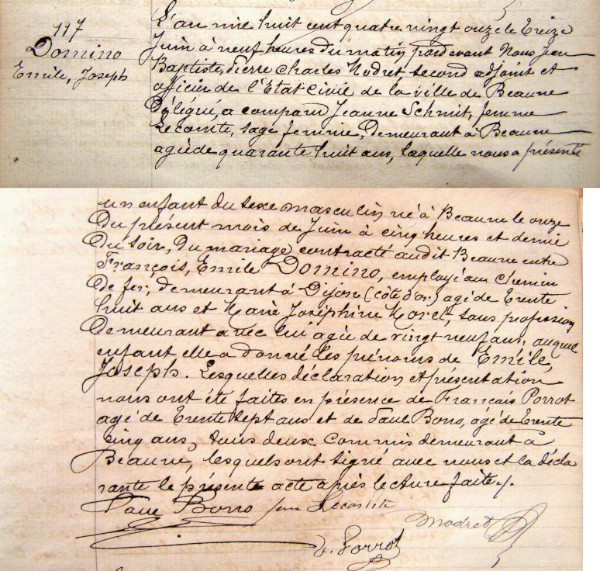 117
Domino
Emile, Joseph
L'an mil huit cent quatre vingt onze le treize
Juin à neuf heures du matin, pardevant Nous Jean
Baptiste, Pierre Charles Modret, second adjoint et
officier de l'Etat Civil de la ville de Beaune
Délégué, a comparu Jeanne Schmit, femme
Lecomte, sage femme, demeurant à Beaune
agée de quarante huit ans, laquelle nous a présenté
un enfant du sexe masculin né à Beaune le onze
du présent mois de Juin à cinq heures et demie
du soir, du mariage contracté audit Beaune entre
François, Emile Domino, employé au Chemin
de fer, demeurant à Dijon (côte d'or) agé de trente
huit ans et Marie Joséphine Morel, sans profession
demeurant avec lui agée de vingt neuf ans, auquel
enfant elle a donné les prénoms de Emile,
Joseph. Lesquelles déclaration et présentation
nous ont été faites en présence de Francois Porrot
agé de trente sept ans et de Paul Borro, agé de trente
cinq ans, tous deux commis demeurant à
Beaune, lesquels ont signé avec nous et la décla
rante le présent acte après lecture faite.
Paul Borro fme Lecomte Modret
Porrot